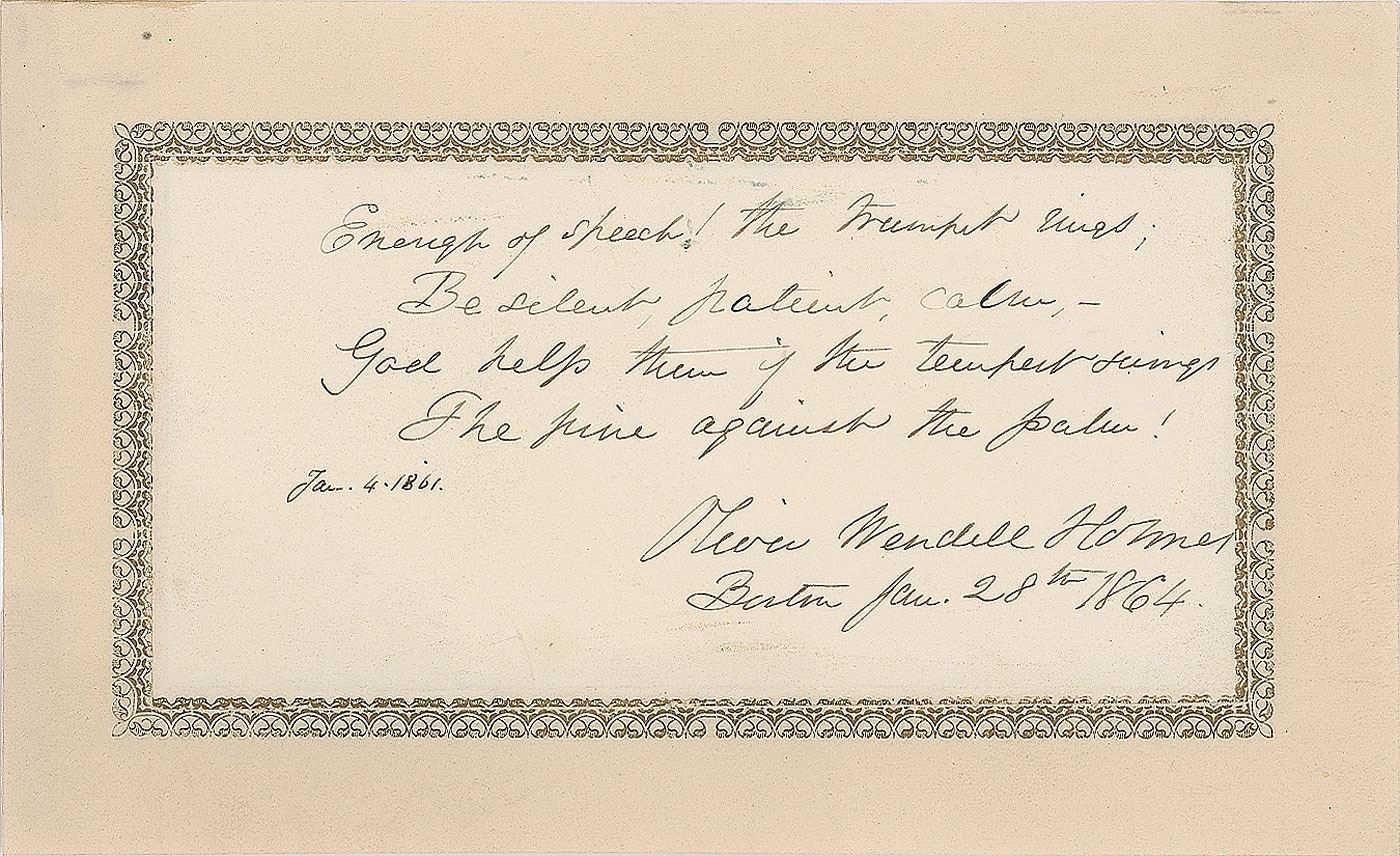 Enough of speech! the trumpet rings;
Be silent, patient, calm, –
God help them if the tempest swings
The pine against the palm!
Jan. 4. 1861.
Oliver Wendell Holmes
Boston Jan. 28th 1864.